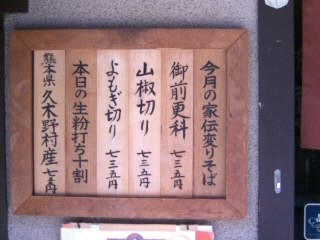 今月の家伝変りそば
御前更科 七三五円
山椒切り 七三五円
よもぎ切り 七三五円
本日の生粉打ち十割
熊本県久木野村産 七三五円